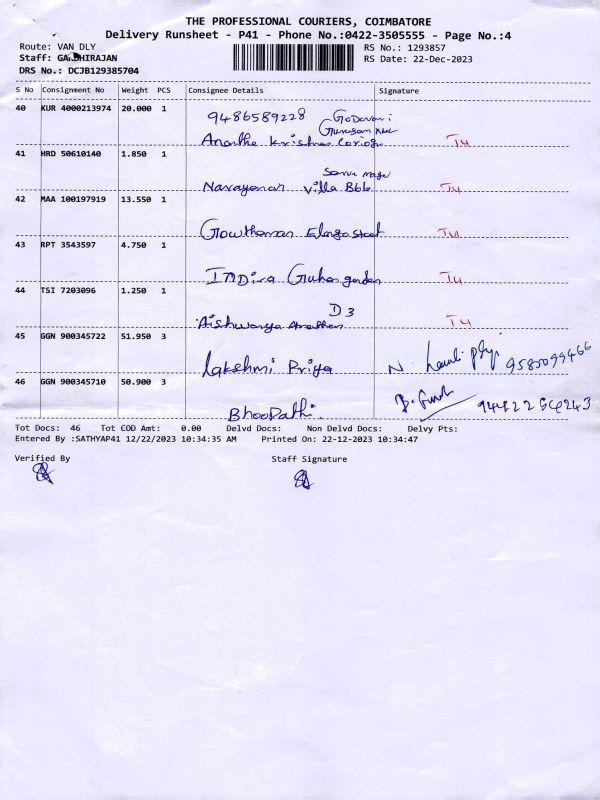 THE PROFESSIONAL COURIERS, COIMBATORE
Delivery Runsheet - P41 - Phone No.:0422-3505555 - Page No.:4
Route: VAN DLY
RS No.: 1293857
Staff: GANDHIRAJAN
RS Date: 22-Dec-2023
DRS No.: DCJB129385704
S No Consignment No Weight PCS Consignee Details Signature
40 KUR 4000213974 20.000 1
9486589228 Godavari
Anantha Krishna
T4
41 HRD 50610140 1.850 1
Narayanan Villa B66 T4
42 MAA 100197919 13.550 1
Gowthaman T4
43 RPT 3543597 4.750 1
Indira garden T4
44 TSI 7203096 1.250 1
D3
Aishwarya T4
45 GGN 900345722 51.950 3
Lakshmi Priya N. 9585099466
46 GGN 900345710 50.900 3
BhooPathi
Tot Docs: 46 Tot COD Amt: 0.00 Delvd Docs: Non Delvd Docs: Delvy Pts:
Entered By :SATHYAP41 12/22/2023 10:34:35 AM Printed On: 22-12-2023 10:34:47
Verified By Staff Signature